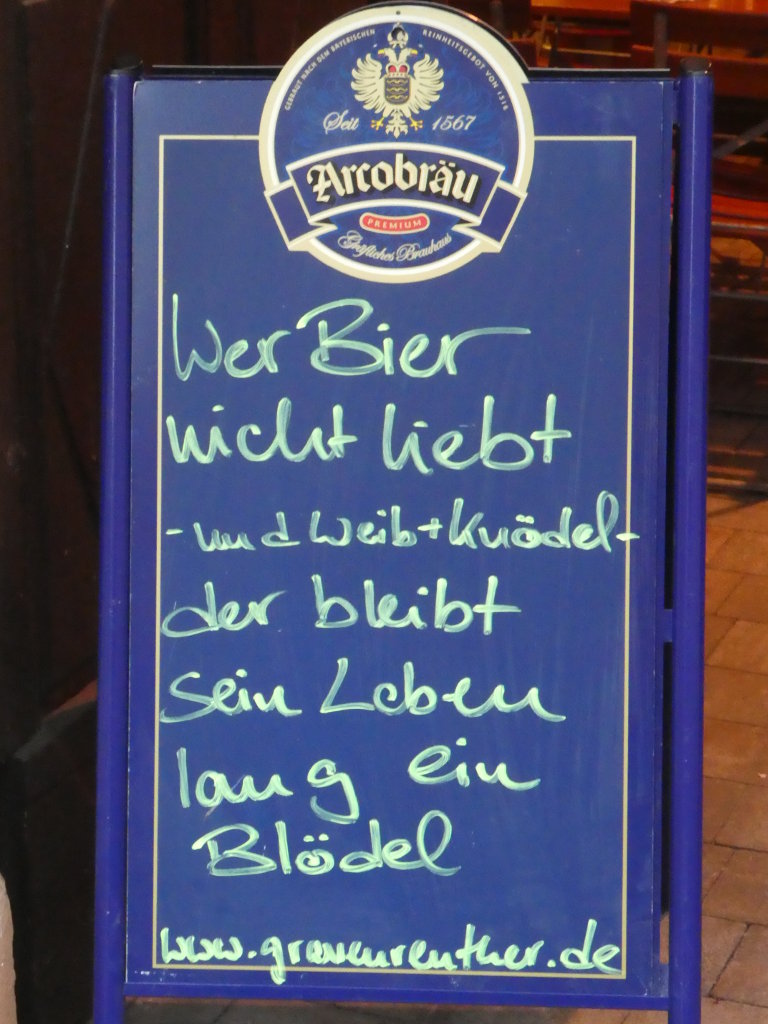 GEBRAUT NACH DEM BAYERISCHEN REINHEITSGEBOT VON 1516
Seit 1567
Arcobräu
PREMIUM
Gräfliches Brauhaus
Wer Bier
nicht liebt
- und Weib + Knödel -
der bleibt
sein Leben
lang ein
Blödel
www.gravenreuther.de